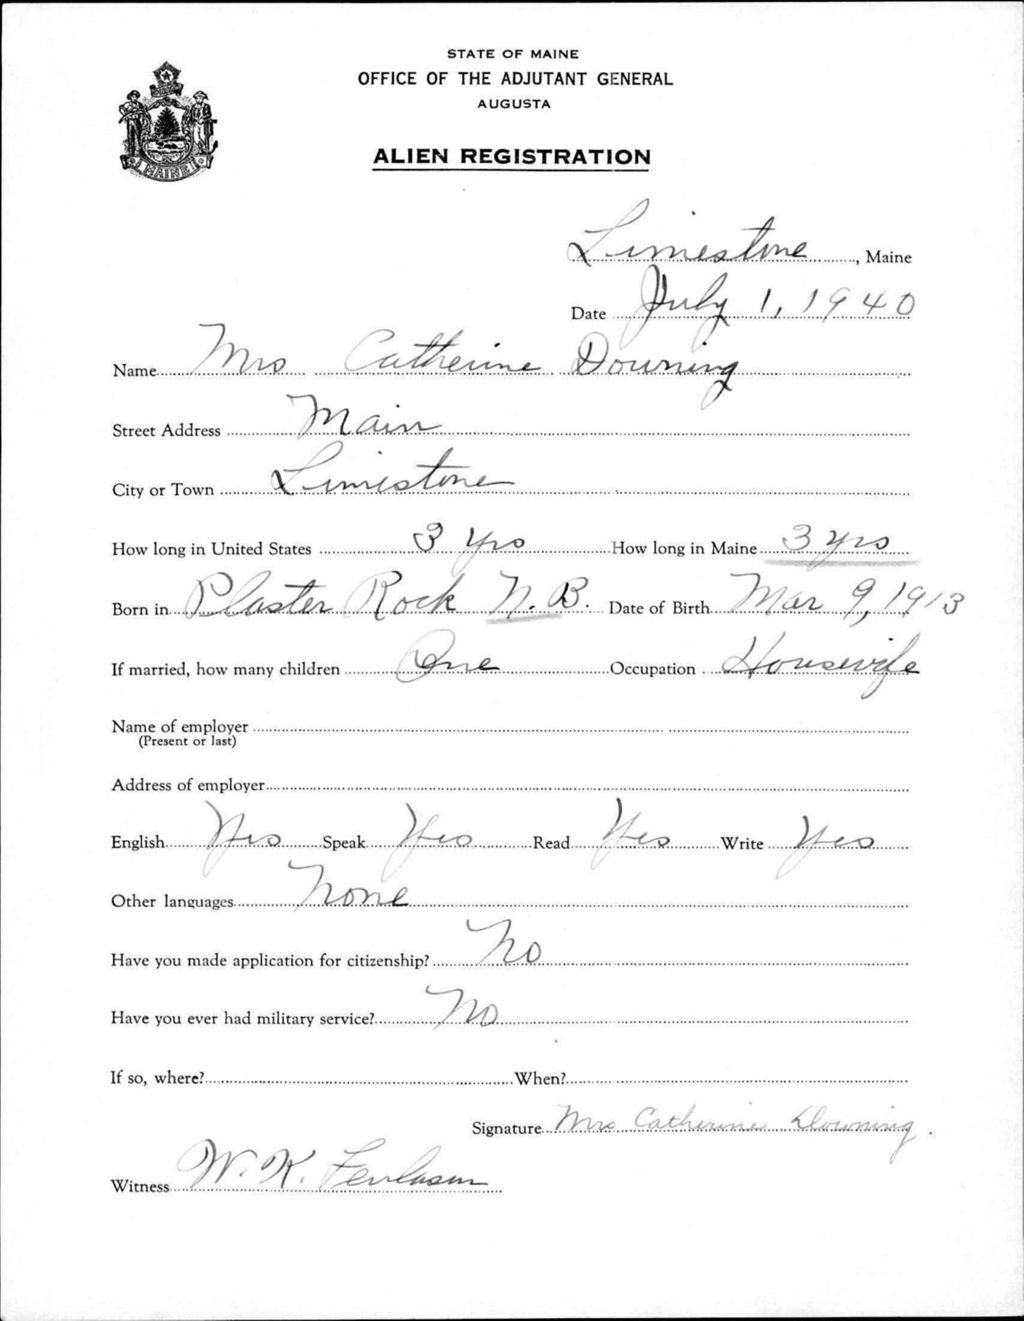 STATE OF MAINE
OFFICE OF THE ADJUTANT GENERAL
AUGUSTA
ALIEN REGISTRATION
MAINE
Limestone, Maine
Date July 1, 1940
Name Mrs Catherine Downing
Street Address Main
City or Town Limestone
How long in United States 3 yrs How long in Maine 3 yrs
Born in Plaster Rock N.B. Date of Birth Mar 9, 1913
If married, how many children One Occupation Housewife
Name of employer
(Present or last)
Address of employer
English Yes Speak Yes Read Yes Write Yes
Other languages None
Have you made application for citizenship? No
Have you ever had military service? No
If so, where? When?
Signature Mrs Catherine Downing
Witness W. K.